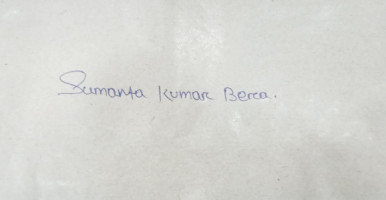 Sumanta Kumar Berea.